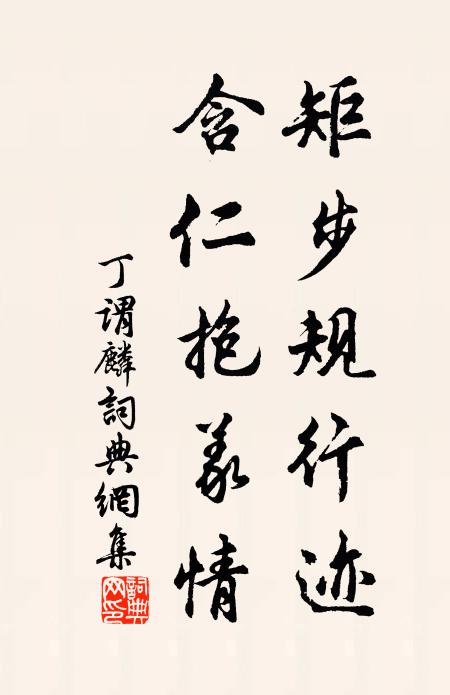 矩步規行迹
含仁抱義情
丁謂麟詞典網集
詞典网印